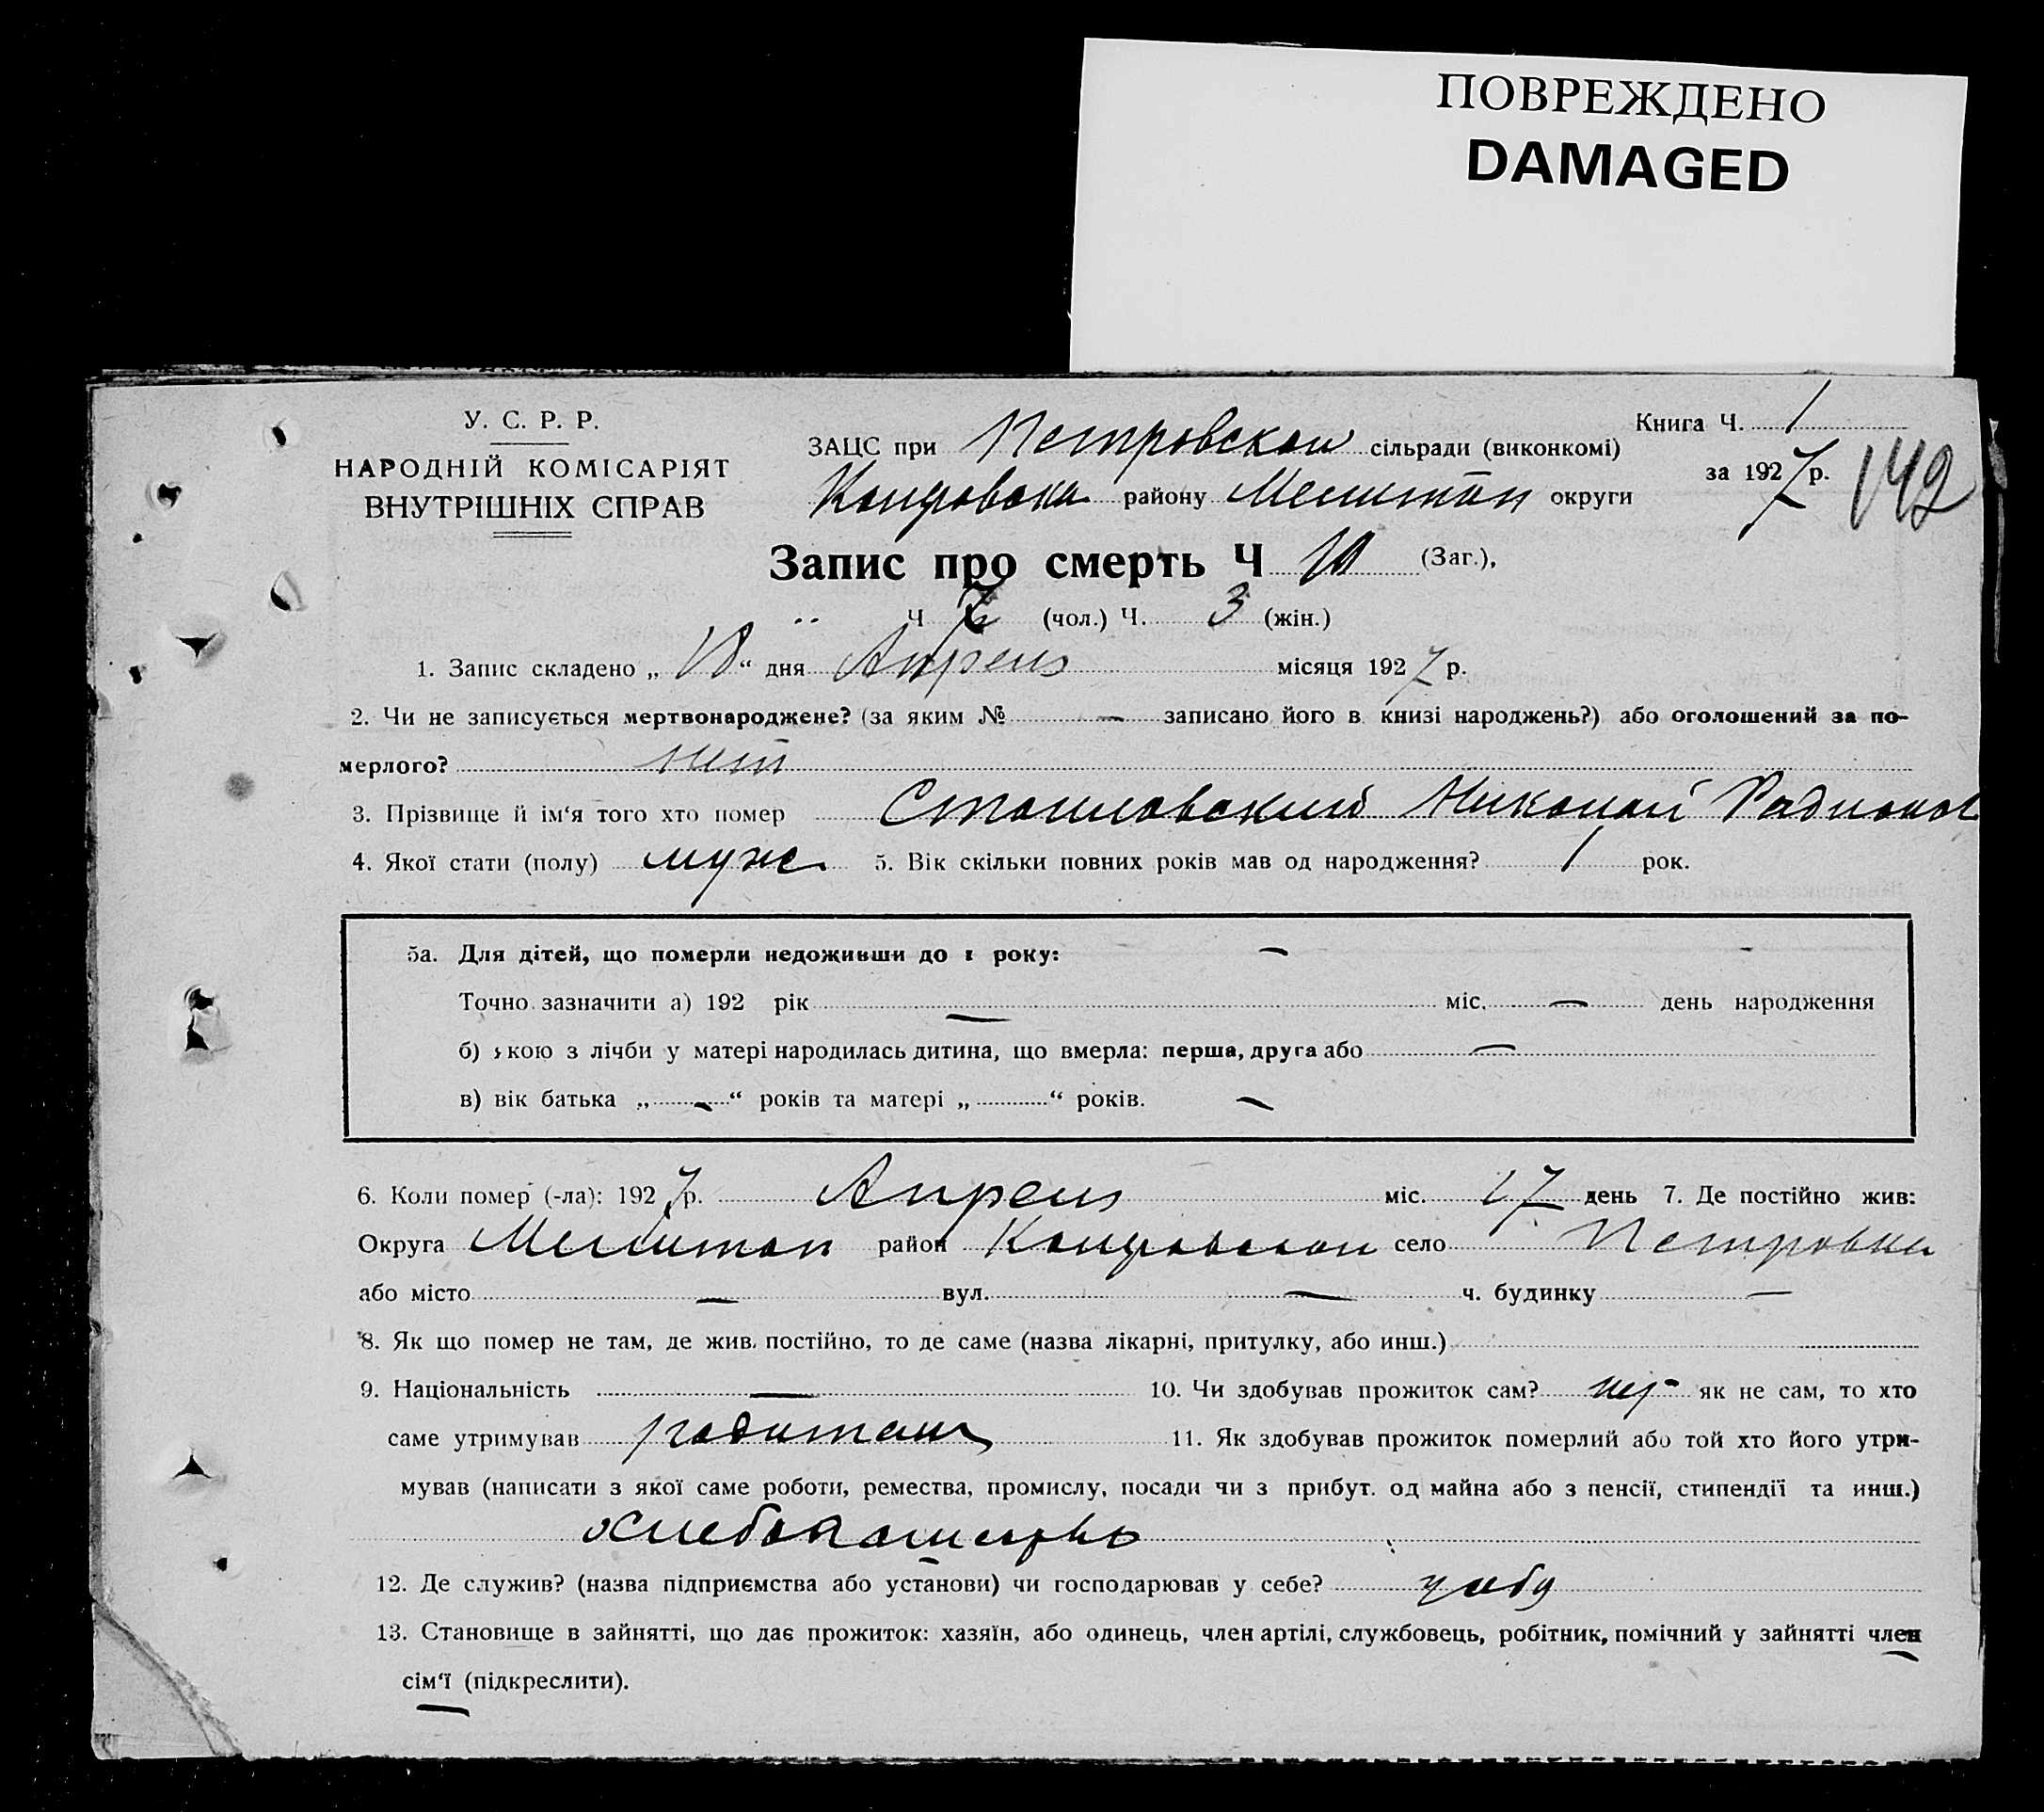 ПОВРЕЖДЕНО
DAMAGED
У. С. Р. Р.
НАРОДНІЙ КОМІСАРІЯТ
ВНУТРІШНІХ СПРАВ
Книга Ч. 1
за 1927 р.
142
ЗАЦС при Петровской сільради (виконкомі)
району Мелитоп округи
Запис про смерть Ч 10 (Заг.),
Ч 7 (чол.) Ч. 3 (жін.)
1. Запис складено „18“ дня Апреля місяця 1927 р.
2. Чи не записується мертвонароджене? (за яким № — записано його в книзі народжень?) або оголошений за по-
мерлого? нет
3. Прізвище й ім'я того хто помер Николай Радионов
4. Якої стати (полу) муж 5. Вік скільки повних років мав од народження? 1 рок.
5а. Для дітей, що померли недоживши до 1 року: —
Точно зазначити а) 192 рік — міс. — день народження
б) якою з лічби у матері народилась дитина, що вмерла: перша, друга або —
в) вік батька „—“ років та матері „ “ років. —
6. Коли помер (-ла): 1927 р. Апреля міс. 17 день 7. Де постійно жив:
Округа Мелитоп район село Петровка
або місто — вул. — ч. будинку —
8. Як що помер не там, де жив постійно, то де саме (назва лікарні, притулку, або инш.)
9. Національність — 10. Чи здобував прожиток сам? нет як не сам, то хто
саме утримував родители 11. Як здобував прожиток померлий або той хто його утри-
мував (написати з якої саме роботи, ремества, промислу, посади чи з прибут. од майна або з пенсії, стипендії та инш.)
хлебопашество
12. Де служив? (назва підприємства або установи) чи господарював у себе? у себя
13. Становище в зайнятті, що дає прожиток: хазяїн, або одинець, член артілі, службовець, робітник, помічний у зайнятті член
сім'ї (підкреслити).